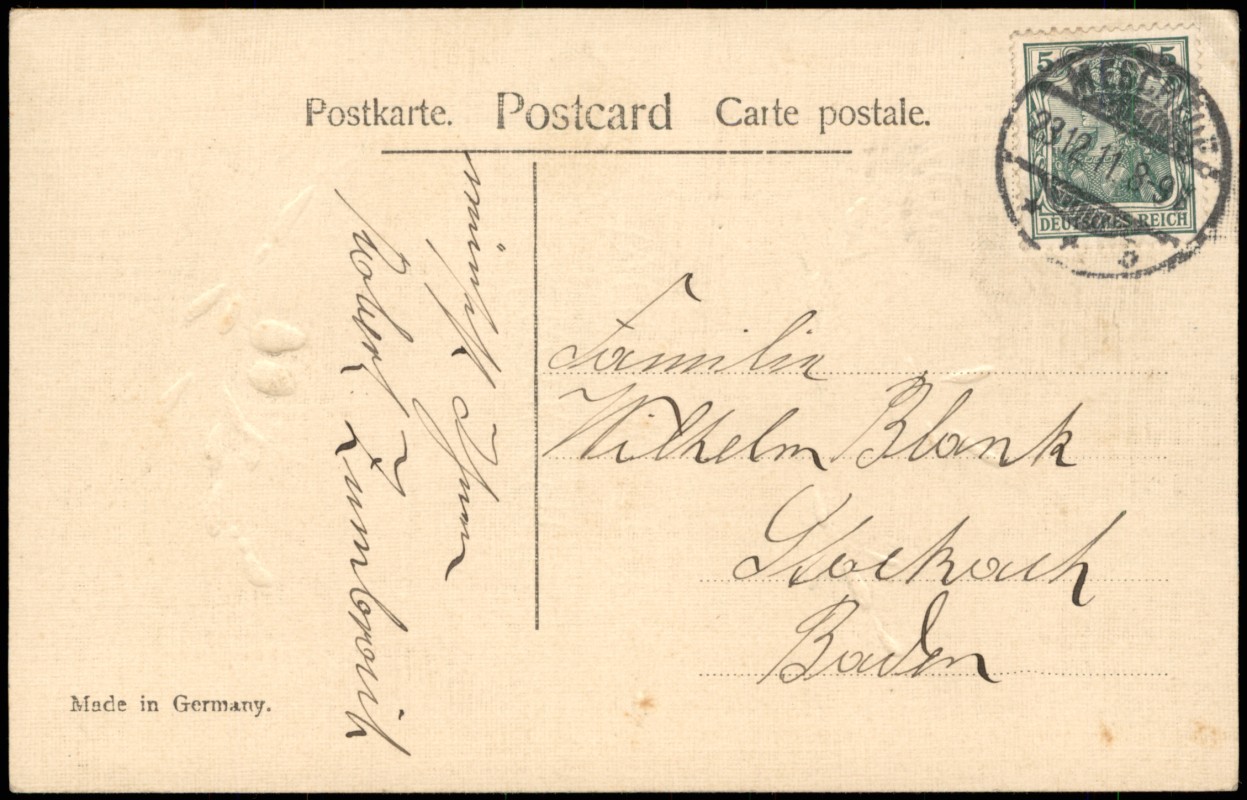 Postkarte. Postcard Carte postale.
5 5
DEUTSCHES REICH
23.12.11. 8-9
wünscht Ihnen
Robert
Familie
Wilhelm Blank
Stockach
Baden
Made in Germany.